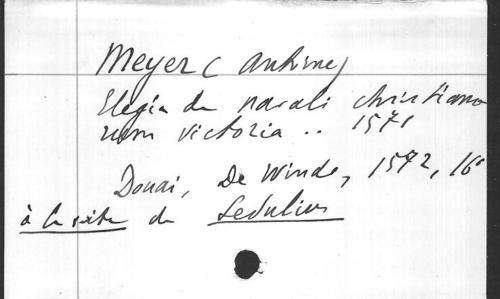 Meyer (Antoine)
Elegia de navali christiano
rum victoria .. 1571
Douai, De Winde, 1572, 16°
à la suite de Sedulius